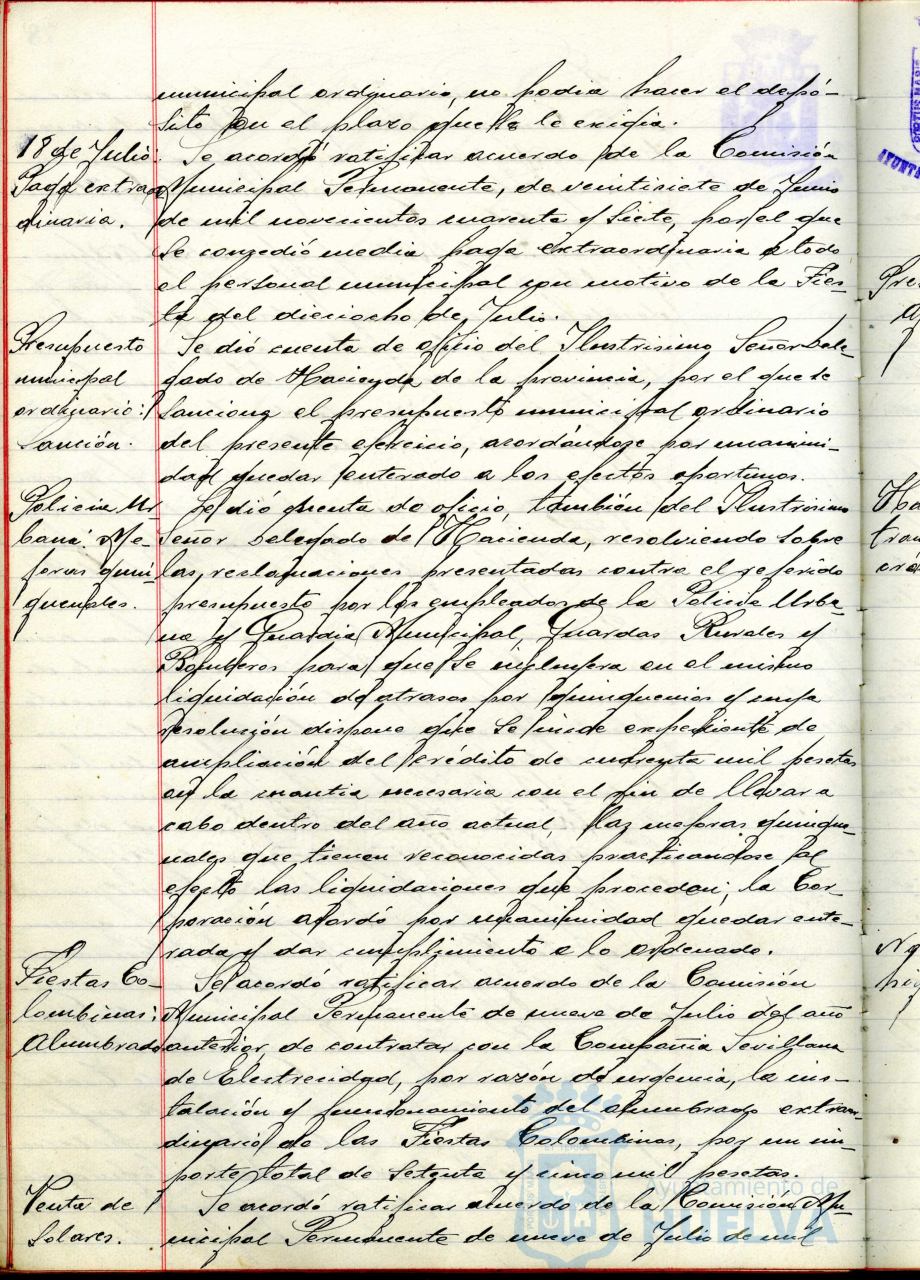 municipal ordinario, no podia hacer el depó-
sito en el plazo que se le exigia.
18 de Julio:
Paga extraor-
dinaria.
Se acordó ratificar acuerdo de la Comisión
Municipal Permanente, de veintisiete de Junio
de mil novecientos cuarenta y siete, por el que
se concedió media paga extraordinaria a todo
el personal municipal con motivo de la Fies-
ta del dieciocho de Julio.
Presupuesto
municipal
ordinario:
Sanción.
Se dió cuenta de oficio del Ilustrisimo Señor Dele-
gado de Hacienda de la provincia, por el que se
sanciona el presupuesto municipal ordinario
del presente ejercicio, acordándose por unanimi-
dad quedar enterado a los efectos oportunos.
Policia Ur-
bana: Me-
joras quin-
quenales.
Se dió cuenta de oficio, también del Ilustrisimo
Señor Delegado de Hacienda, resolviendo sobre
las reclamaciones presentadas contra el referido
presupuesto por los empleados de la Policia Urba-
na y Guardia Municipal, Guardas Rurales y
Bomberos para que se incluyera en el mismo
liquidación de atrasos por quinquenios y cuya
resolución dispone que se inicie expediente de
ampliación del crédito de cuarenta mil pesetas
en la cuantia necesaria con el fin de llevar a
cabo dentro del año actual, las mejoras quinque-
nales que tienen reconocidas practicandose al
efecto las liquidaciones que procedan; la Cor-
poración acordó por unanimidad quedar ente-
rada y dar cumplimiento a lo ordenado.
Fiestas Co-
lombinas:
Alumbrado
Se acordó ratificar acuerdo de la Comisión
Municipal Permanente de nueve de Julio del año
anterior, de contratar con la Compañia Sevillana
de Electrecidad, por razón de urgencia, la ins-
talación y funcionamiento del alumbrado extraor-
dinario de las Fiestas Colombinas, por un im
porte total de setenta y cinco mil pesetas.
Venta de
Solares.
Se acordó ratificar acuerdo de la Comisión Mu-
nicipal Permanente de nueve de Julio de mil
Ayuntamiento de
HUELVA